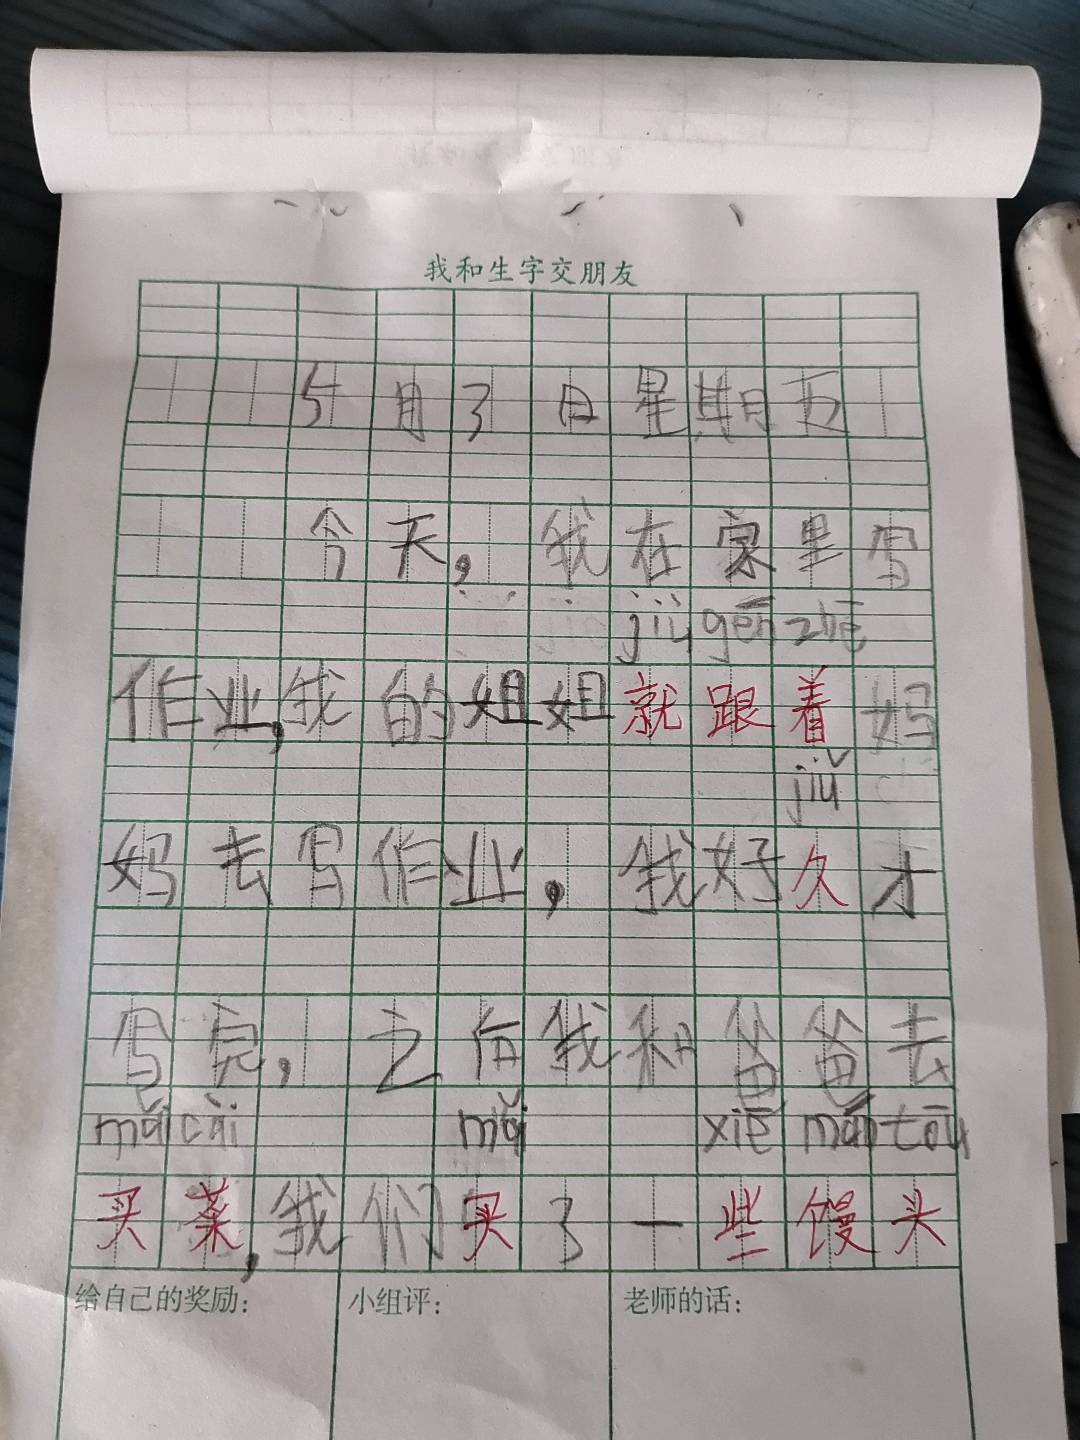 我和生字交朋友
5月3日星期五
今天，我在家里写
jiù gēn zhe
作业，我的姐姐就跟着妈
jiǔ
妈去写作业，我好久才
写完，之后我和爸爸去
mǎi cài mǎi xiē mán tōu
买菜，我们买了一些馒头
给自己的奖励： 小组评： 老师的话：